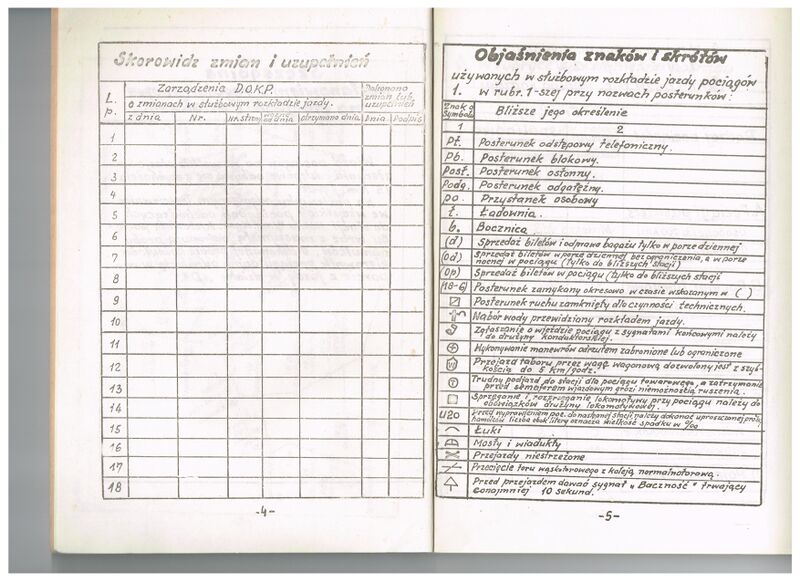 Skorowidz zmian i uzupełnień
L.p.
Zarządzenia D.O.K.P.
o zmianach w służbowym rozkładzie jazdy.
Dokonano
zmian lub
uzupełnień
z dnia
Nr.
Nr. strony
ważne od dnia
otrzymano dnia
Dnia
Podpis
1
2
3
4
5
6
7
8
9
10
11
12
13
14
15
16
17
18
-4-
Objaśnienia znaków i skrótów
używanych w służbowym rozkładzie jazdy pociągów
1. w rubr. 1-szej przy nazwach posterunków:
Znak o
Symbolu
Bliższe jego określenie
1
2
Pt. Posterunek odstępowy telefoniczny.
pb. Posterunek blokowy.
Post. Posterunek osłonny.
Podg. Posterunek odgałęźny.
po. Przystanek osobowy
ł. Ładownia.
b. Bocznica
(d) Sprzedaż biletów i odprawa bagażu tylko w porze dziennej
(od) Sprzedaż biletów w porze dziennej bez ograniczenia, a w porze
nocnej w pociągu (tylko do bliższych stacji)
(op) Sprzedaż biletów w pociągu (tylko do bliższych stacji
(18-6) Posterunek zamykany okresowo w czasie wskazanym w ( )
Posterunek ruchu zamknięty dla czynności technicznych.
Nabór wody przewidziany rozkładem jazdy.
Zgłaszanie o wjeździe pociągu z sygnałami końcowymi należy
do drużyny konduktorskiej.
Wykonywanie manewrów odrzutem zabronione lub ograniczone
Przejazd taboru przez wagę wagonową dozwolony jest z szyb-
kością do 5 km/godz.
Trudny podjazd do stacji dla pociągu towarowego, a zatrzymanie
przed semaforem wjazdowym grozi niemożnością ruszenia.
Sprzęganie i rozprzęganie lokomotywy przy pociągu należy do
obowiązków drużyny lokomotywowej.
U20 Przed wyprawieniem poc. do następnej stacji należy dokonać uproszczonej próby
hamulców liczba obok litery oznacza wielkość spadku w ‰
Łuki
Mosty i wiadukty
Przejazdy niestrzeżone
Przecięcie toru wąskotorowego z koleją normalnotorową.
Przed przejazdem dawać sygnał „Baczność" trwający
conajmniej 10 sekund.
-5-